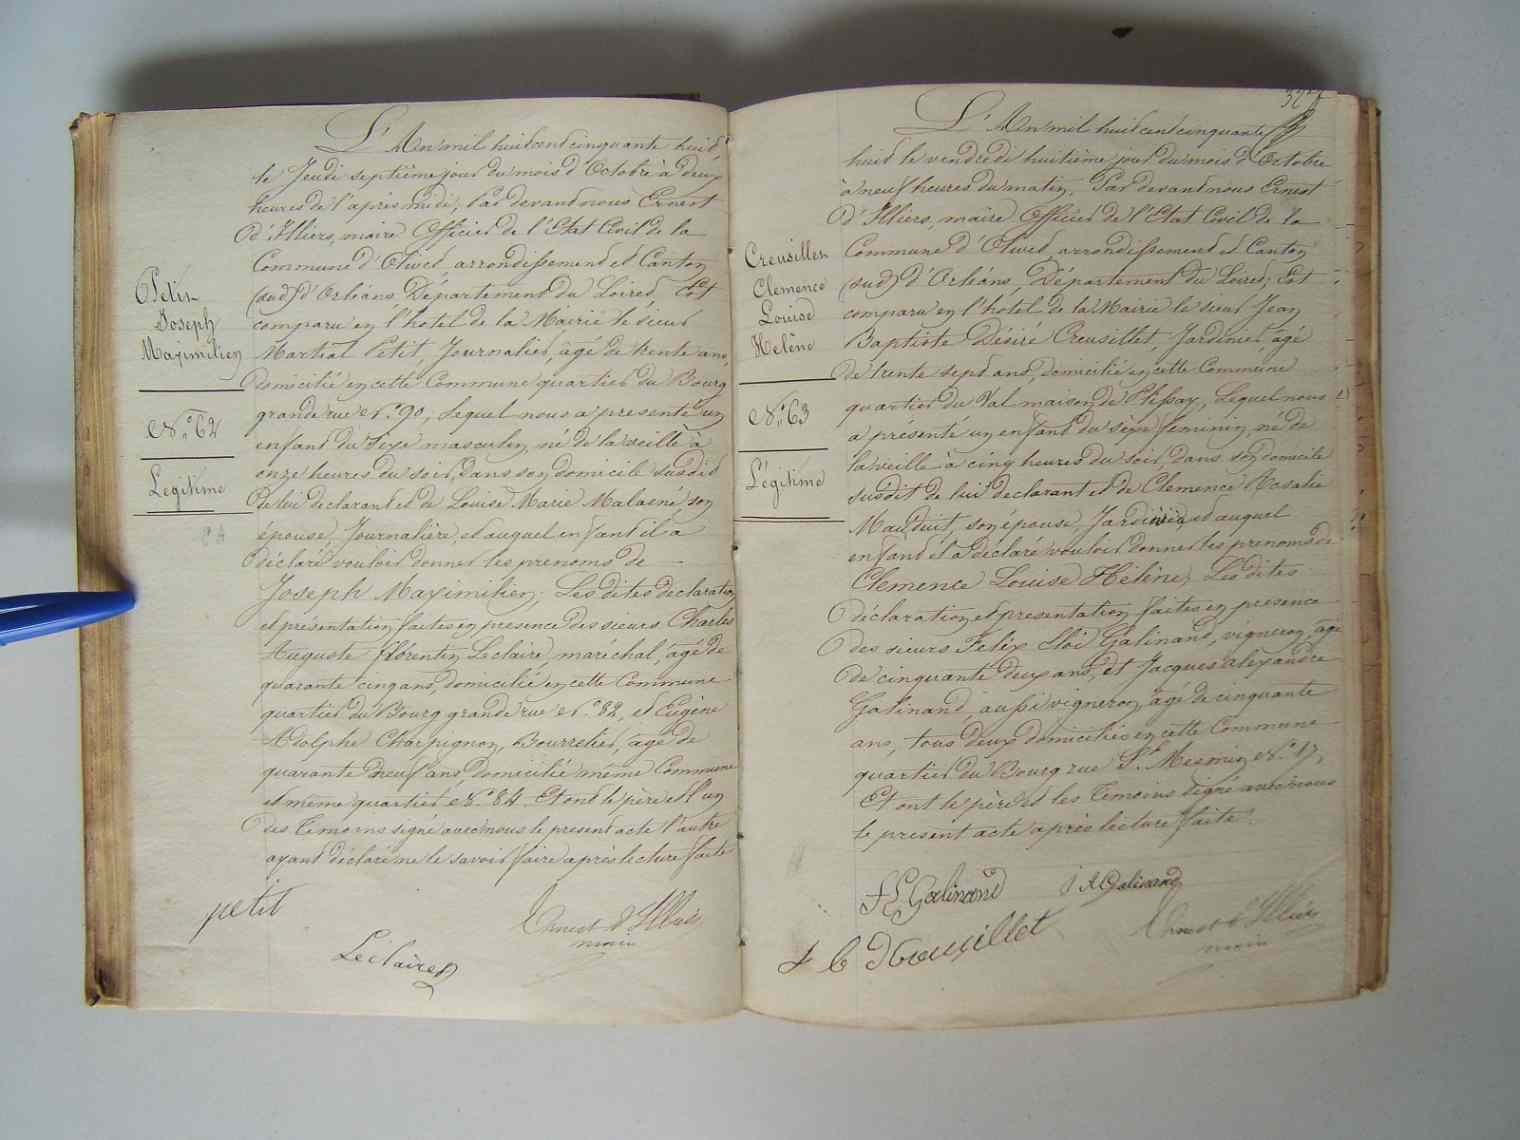 Petit
Joseph
Maximilien
N.º 62
Legitime
L'An mil huit cent cinquante huit
le Jeudi septième jour du mois d'Octobre à deux
heures de l'après midi; Par devant nous Ernest
d'Illiers, maire Officier de l'Etat Civil de la
Commune d'Olivet, arrondissement et Canton
(sud) d'Orléans, Département du Loiret, Est
comparu en l'hotel de la Mairie le sieur
Martial Petit, Journalier, âgé de trente ans,
domicilié en cette Commune quartier du Bourg
grande rue N.º 90, Lequel nous a presenté un
enfant du Sexe masculin, né de la veille à
onze heures du soir, dans son domicile susdit
De lui declarant et de Louise Marie Malaené, son
épouse, Journalière, et auquel enfant il a
déclaré vouloir donner les prenoms de
Joseph Maximilien; Les dites déclaration
et présentation faites en presence des sieurs Charles
Auguste florentin Leclaire, maréchal, âgé de
quarante cinq ans, domicilié en cette Commune
quartier du Bourg grande rue N.º 82, et Eugène
Adolphe Charpignon, Bourrelier, âgé de
quarante neuf ans domicilié même Commune
et même quartier N.º 84. Et ont le père et l'un
des Témoins signé avec nous le present acte l'autre
ayant déclaré ne le savoir faire après lecture faite
petit
Leclaire
Ernest d'Illiers
maire
Creusillet
Clemence
Louise
Helène
N.º 63
Légitime
L'An mil huit cent cinquante
huit le vendredi huitième jour du mois d'Octobre
à neuf heures du matin, Par devant nous Ernest
d'Illiers, maire Officier de l'Etat Civil de la
Commune d'Olivet, arrondissement et Canton
(sud) d'Orléans, Département du Loiret; Est
comparu en l'hotel de la Mairie le sieur Jean
Baptiste Désiré Creusillet, Jardinier âgé
de trente sept ans, domicilié en cette Commune
quartier du Val maison de l'Essay, Lequel nous
a présenté un enfant du sexe feminin, né de
la veille à cinq heures du soir, dans son domicile
susdit de lui declarant et de Clemence Rosalie
Mauduit, son épouse, Jardinière, et auquel
enfant il a déclaré vouloir donner les prenoms de
Clemence Louise Hélène; Les dites
déclaration et presentation faites en presence
des sieurs Felix Eloi Galinand, vigneron, âgé
de cinquante deux ans, et Jacques alexandre
Galinand, aussi vigneron, âgé de cinquante
ans, tous deux domiciliés en cette Commune
quartier du Bourg rue S.t Mesmin N.º 17,
Et ont le père et les Témoins signé avec nous
le present acte après lecture faite.
f E Galinand
J A Galinand
Creusillet
Ernest d'Illiers
maire